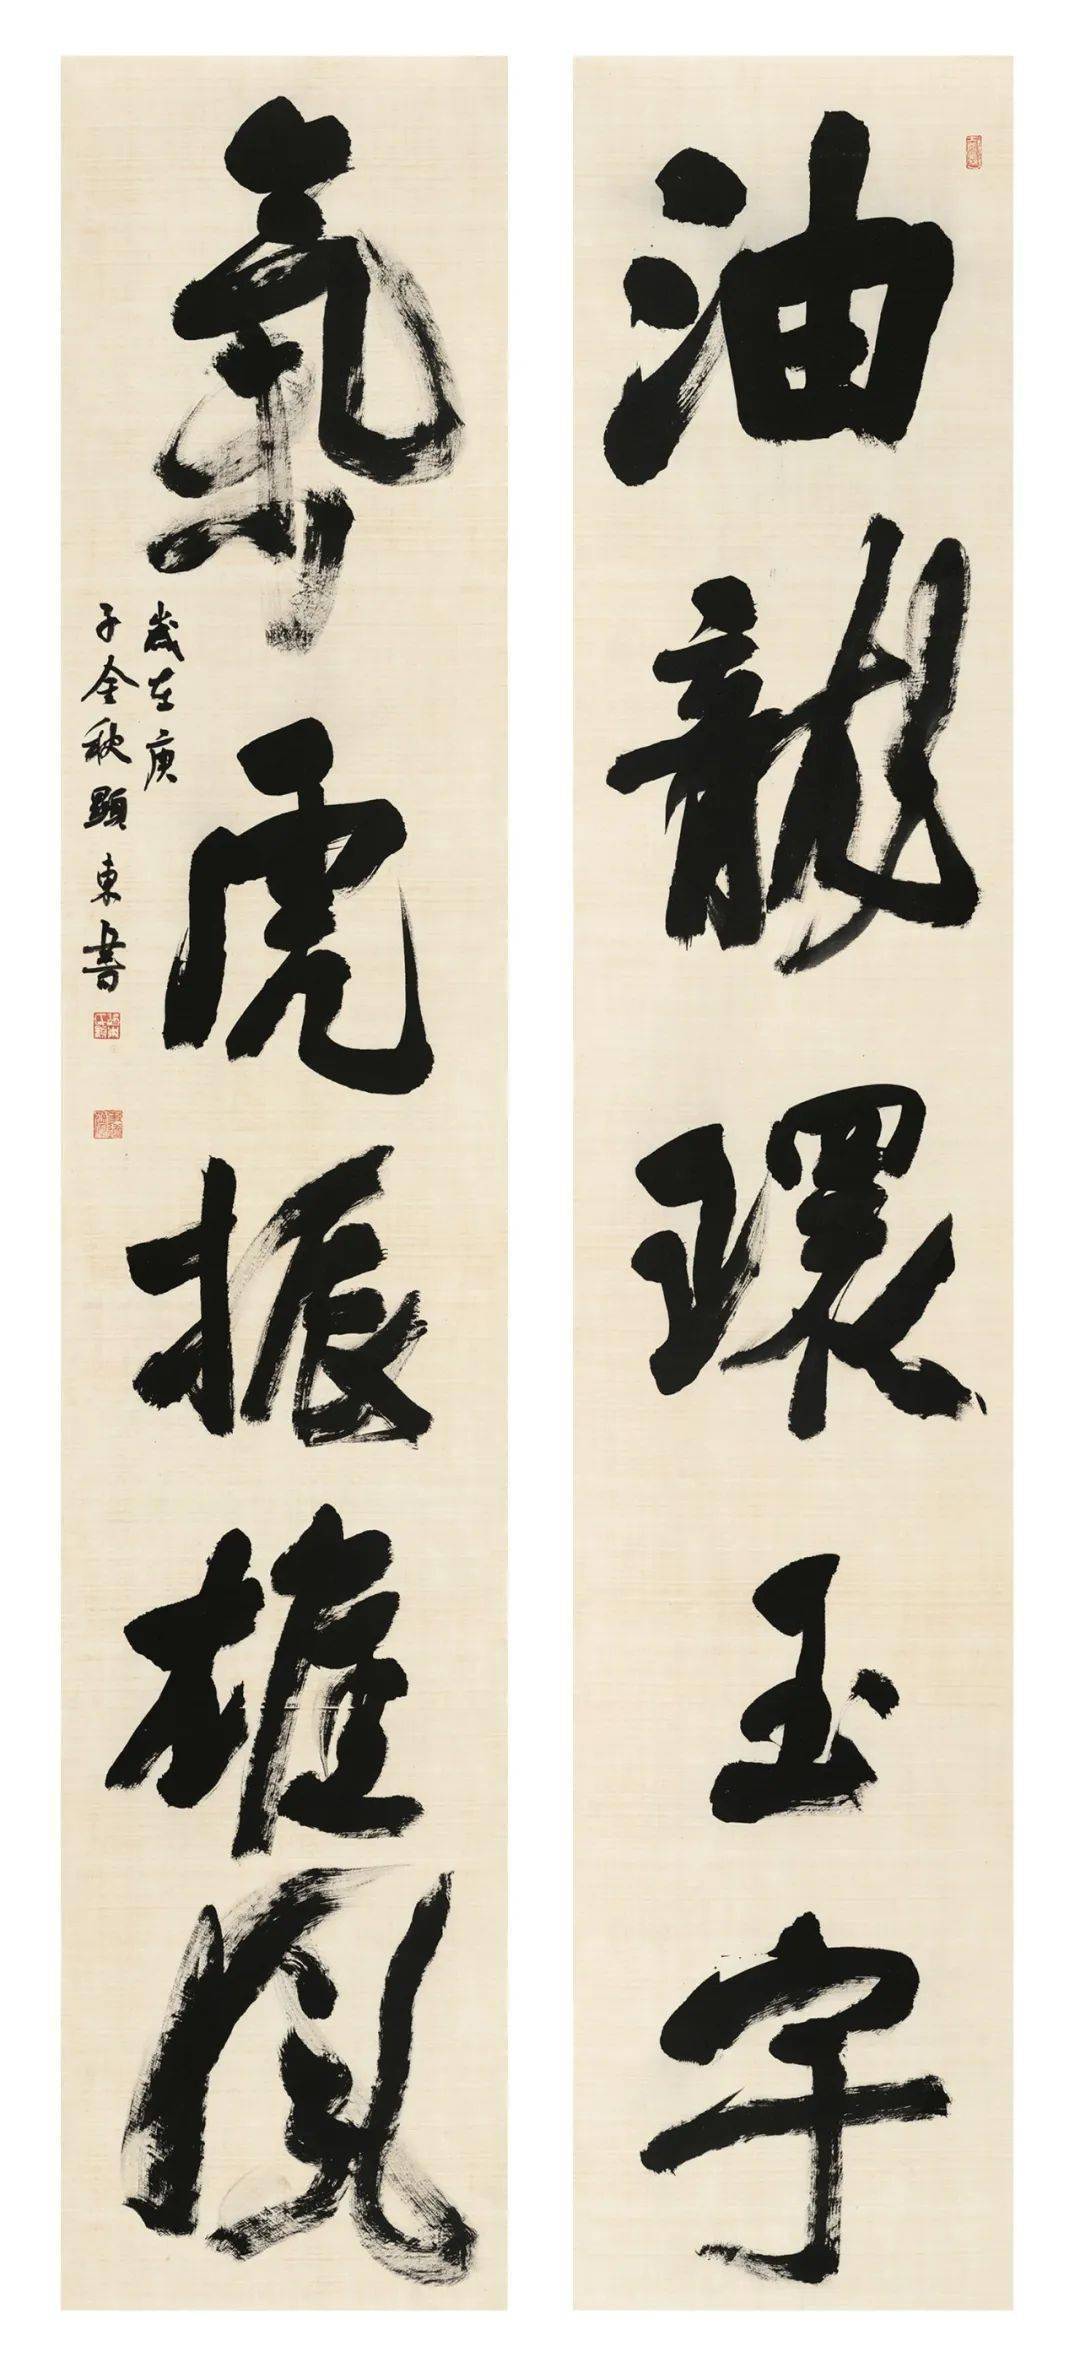 油龍環玉宇
氣虎振雄風
歲在庚
子金秋顯東書